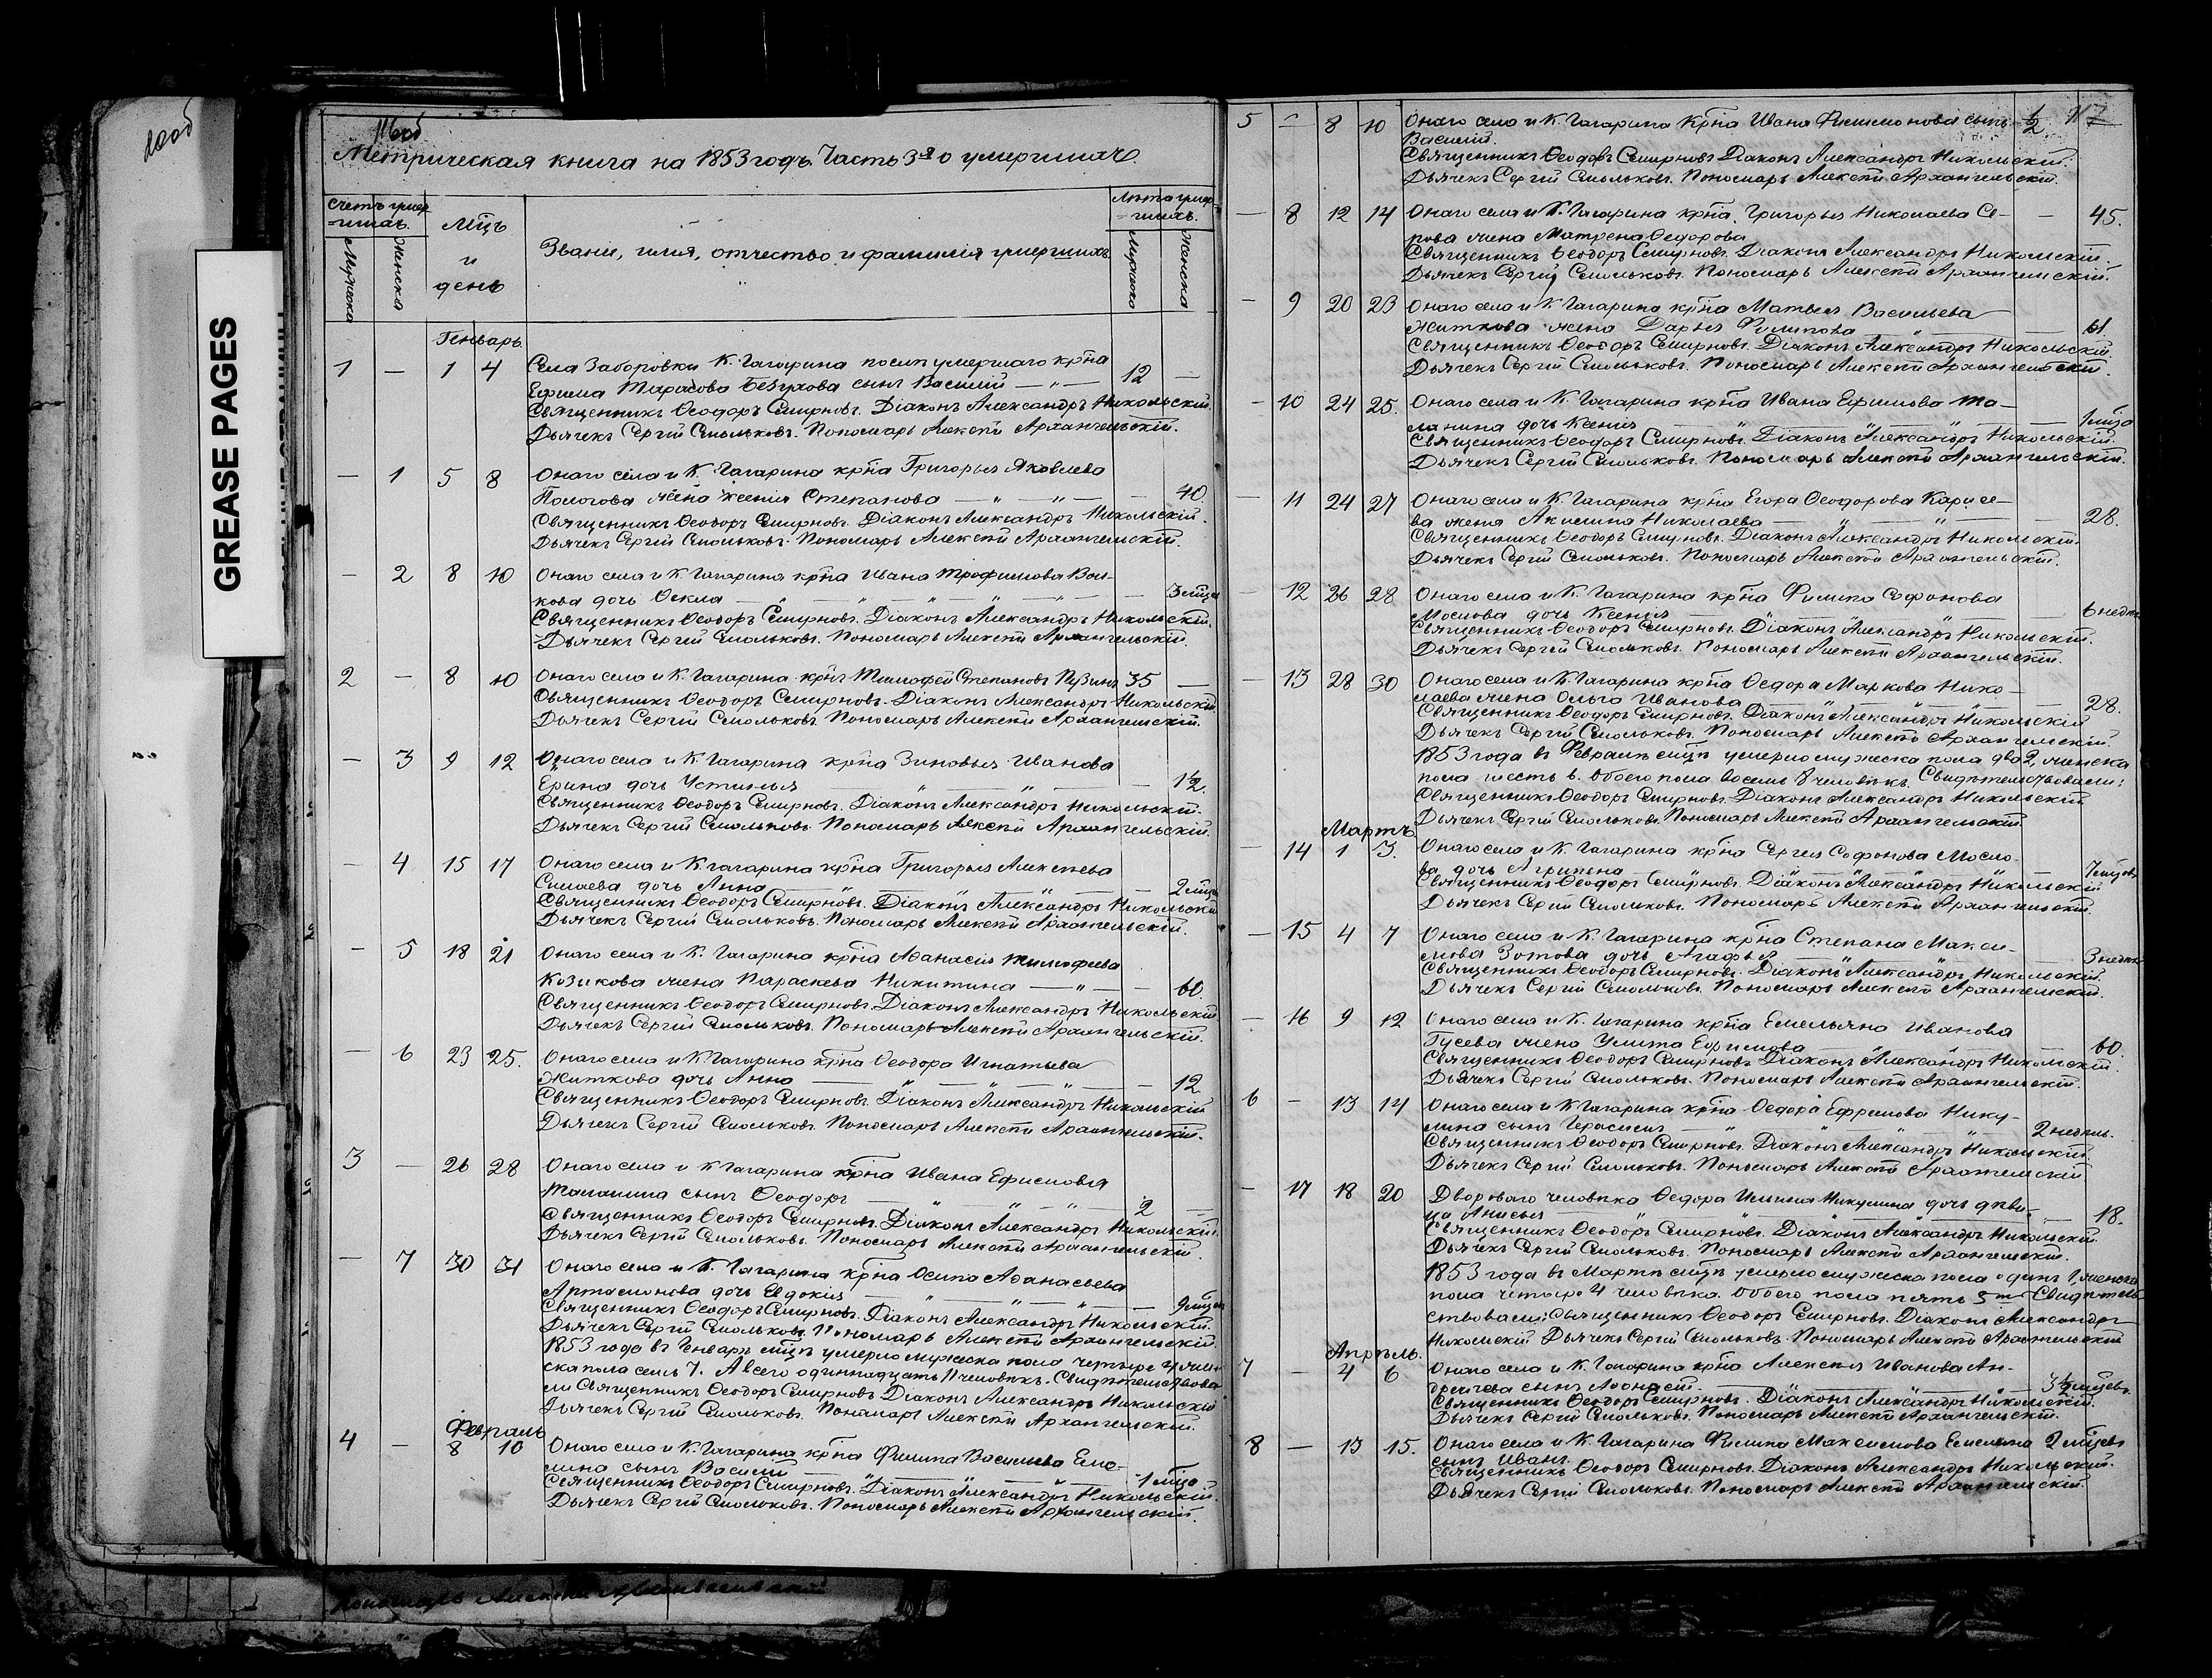 100об
GREASE PAGES
116об
Метрическая книга на 1853 годъ Часть 3я о умершихъ.
Счетъ умер
=шихъ.
Мцъ
и
день
Званіе, имя, отчество и фамилія умершихъ
Лѣта умер
=шихъ.
Мужеска
Женска
Мужеска
Женска
Генварь
1 — 1 4 Села Заборовки К. Гагарина посли умершаго крна
Ефима Тарасова Безухова сынъ Василий — „ — 12 —
Священникъ Ѳеодоръ Смирновъ. Діаконъ Александръ Никольскій.
Дьячекъ Сергій Смольковъ. Пономарь Алексѣй Архангельскій.
— 1 5 8 Онаго села и К. Гагарина крна Григорья Яковлева
Пологова жена Ксения Степанова — „ — „ — — 40.
Священникъ Ѳеодоръ Смирновъ. Діаконъ Александръ Никольскій.
Дьячекъ Сергій Смольковъ. Пономарь Алексѣй Архангельскій.
— 2 8 10 Онаго села и К. Гагарина крна Ивана Трофимова Вол-
кова дочь Ѳекла — „ — „ — „ — „ — — 3 мца
Священникъ Ѳеодоръ Смирновъ. Діаконъ Александръ Никольскій.
Дьячекъ Сергій Смольковъ. Пономарь Алексѣй Архангельскій.
2 — 8 10 Онаго села и К. Гагарина крнъ Тимофей Степановъ Пузинъ 35 —
Священникъ Ѳеодоръ Смирновъ. Діаконъ Александръ Никольскій.
Дьячекъ Сергій Смольковъ. Пономарь Алексѣй Архангельскій.
— 3 9 12 Онаго села и К. Гагарина крна Зиновья Иванова
Ерина дочь Устинья — „ — „ — — 1½.
Священникъ Ѳеодоръ Смирновъ. Діаконъ Александръ Никольскій.
Дьячекъ Сергій Смольковъ. Пономарь Алексѣй Архангельскій.
— 4 15 17 Онаго села и К. Гагарина крна Григорья Алексѣева
Симаева дочь Анна — „ — „ — „ — — 2 мца
Священникъ Ѳеодоръ Смирновъ. Діаконъ Александръ Никольскій
Дьячекъ Сергій Смольковъ. Пономарь Алексѣй Архангельскій.
— 5 18 21 Онаго села и К. Гагарина крна Аѳанасія Тимофеева
Козикова жена Параскева Никитина — „ — — 60.
Священникъ Ѳеодоръ Смирновъ. Діаконъ Александръ Никольскій.
Дьячекъ Сергій Смольковъ. Пономарь Алексѣй Архангельскій.
— 6 23 25. Онаго села и К. Гагарина крна Ѳеодора Игнатьева
Житкова дочь Анна — „ — „ — „ — — 12.
Священникъ Ѳеодоръ Смирновъ. Діаконъ Александръ Никольскій
Дьячекъ Сергій Смольковъ. Пономарь Алексѣй Архангельскій.
3 — 26 28 Онаго села и К. Гагарина крна Ивана Ефимовья
Таланина сынъ Ѳеодоръ — „ — „ — 2 —
Священникъ Ѳеодоръ Смирновъ. Діаконъ Александръ Никольскій.
Дьячекъ Сергій Смольковъ. Пономарь Алексѣй Архангельскій
— 7 30 31 Онаго села и К. Гагарина крна Осипа Аѳанасьева
Артамонова дочь Евдокия — „ — „ — „ — — 9 мцев
Священникъ Ѳеодоръ Смирновъ. Діаконъ Александръ Никольскій.
Дьячекъ Сергій Смольковъ. Пономарь Алексѣй Архангельскій.
1853 года въ Генварѣ мцѣ умерло мужеска пола четыре 4, жен-
ска пола семь 7. А всего одиннадцать 11 человѣкъ. Свидѣтельствова
ли Священникъ Ѳеодоръ Смирновъ Діаконъ Александръ Никольскій
Дьячекъ Сергій Смольковъ. Пономарь Алексѣй Архангельскій.
Февраль
4 — 8 10 Онаго села и К. Гагарина крна Филипа Васильева Еме-
лина сынъ Василий — „ — „ — „ — 1 мца —
Священникъ Ѳеодоръ Смирновъ. Діаконъ Александръ Никольскій.
Дьячекъ Сергій Смольковъ. Пономарь Алексѣй Архангельскій.
Пономарь Алексѣй Архангельскій
117
5 — 8 10 Онаго села и К. Гагарина крна Ивана Филимонова сынъ ½
Василий.
Священникъ Ѳеодоръ Смирновъ Діаконъ Александръ Никольскій.
Дьячекъ Сергій Смольковъ. Пономарь Алексѣй Архангельскій.
— 8 12 14 Онаго села и К. Гагарина крна. Григорья Николаева Се-
рова жена Матрена Ѳедорова — 45.
Священникъ Ѳеодоръ Смирновъ. Діаконъ Александръ Никольскій.
Дьячекъ Сергій Смольковъ. Пономарь Алексѣй Архангельскій.
— 9 20 23 Онаго села и К. Гагарина крна Матвея Васильева
Житкова жена Дарья Филипова — „ — — 61.
Священникъ Ѳеодоръ Смирновъ. Діаконъ Александръ Никольскій.
Дьячекъ Сергій Смольковъ. Пономарь Алексѣй Архангельскій.
— 10 24 25. Онаго села и К. Гагарина крна Ивана Ефимова Та-
ланина дочь Ксения — „ — „ — „ — — 1 мца
Священникъ Ѳеодоръ Смирновъ. Діаконъ Александръ Никольскій.
Дьячекъ Сергій Смольковъ. Пономарь Алексѣй Архангельскій.
— 11 24 27 Онаго села и К. Гагарина крна Егора Ѳеодорова Карисе-
ва жена Акилина Николаева — „ — „ — — 28.
Священникъ Ѳеодоръ Смирновъ. Діаконъ Александръ Никольскій.
Дьячекъ Сергій Смольковъ. Пономарь Алексѣй Архангельскій.
— 12 26 28 Онаго села и К. Гагарина крна Филипа Софонова
Маслова дочь Ксения — „ — „ — — 6 недѣль
Священникъ Ѳеодоръ Смирновъ. Діаконъ Александръ Никольскій.
Дьячекъ Сергій Смольковъ. Пономарь Алексѣй Архангельскій.
— 13 28 30 Онаго села и К. Гагарина крна Ѳедора Маркова Нико-
лаева жена Ольга Иванова — „ — „ — — 28.
Священникъ Ѳеодоръ Смирновъ. Діаконъ Александръ Никольскій
Дьячекъ Сергій Смольковъ. Пономарь Алексѣй Архангельскій.
1853 года въ Февралѣ мцѣ умерло мужеска пола два 2, женска
пола шесть 6. Обоего пола восемь 8 человѣкъ. Свидѣтельствовали:
Священникъ Ѳеодоръ Смирновъ. Діаконъ Александръ Никольскій
Дьячекъ Сергій Смольковъ. Пономарь Алексѣй Архангельскій.
Мартъ
— 14 1 3. Онаго села и К. Гагарина крна Сергея Софонова Масло-
ва дочь Агрипена — „ — „ — „ — — 7 мцевъ
Священникъ Ѳеодоръ Смирновъ. Діаконъ Александръ Никольскій
Дьячекъ Сергій Смольковъ. Пономарь Алексѣй Архангельскій.
— 15 4 7 Онаго села и К. Гагарина крна Степана Макси-
мова Зотова дочь Агафья — „ — „ — — 3 недѣли
Священникъ Ѳеодоръ Смирновъ. Діаконъ Александръ Никольскій.
Дьячекъ Сергій Смольковъ. Пономарь Алексѣй Архангельскій.
— 16 9 12 Онаго села и К. Гагарина крна Емельяна Иванова
Гусева жена Улита Ефимова — „ — „ — — 60.
Священникъ Ѳеодоръ Смирновъ Діаконъ Александръ Никольскій.
Дьячекъ Сергій Смольковъ. Пономарь Алексѣй Архангельскій.
6 — 13 14 Онаго села и К. Гагарина крна Ѳедора Ефремова Нику-
лина сынъ Герасимъ — „ — „ — „ — 2 недѣль.
Священникъ Ѳеодоръ Смирновъ. Діаконъ Александръ Никольскій.
Дьячекъ Сергій Смольковъ. Пономарь Алексѣй Архангельскій
— 17 18 20 Двороваго человѣка Ѳедора Ильина Никулина дочь дѣви-
ца Анисья — „ — „ — „ — — 18.
Священникъ Ѳеодоръ Смирновъ. Діаконъ Александръ Никольскій.
Дьячекъ Сергій Смольковъ. Пономарь Алексѣй Архангельскій.
1853 года въ Мартѣ мцѣ умерло мужеска пола одинъ 1, женска
пола четыре 4 человѣка. Обоего пола пять 5. Свидѣтель-
ствовали; Священникъ Ѳеодоръ Смирновъ. Діаконъ Александръ
Никольскій Дьячекъ Сергій Смольковъ. Пономарь Алексѣй Архангельскій
Апрѣль.
7 — 4 6 Онаго села и К. Гагарина крна Алексѣя Иванова Ан-
дреичева сынъ — „ — „ — 3½ мцевъ.
Священникъ Ѳеодоръ Смирновъ. Діаконъ Александръ Никольскій.
Дьячекъ Сергій Смольковъ. Пономарь Алексѣй Архангельскій.
8 — 13 15. Онаго села и К. Гагарина Филипа Максимова Емелина 2 мцевъ
сынъ Иванъ.
Священникъ Ѳеодоръ Смирновъ. Діаконъ Александръ Никольскій.
Дьячекъ Сергій Смольковъ. Пономарь Алексѣй Архангельскій.